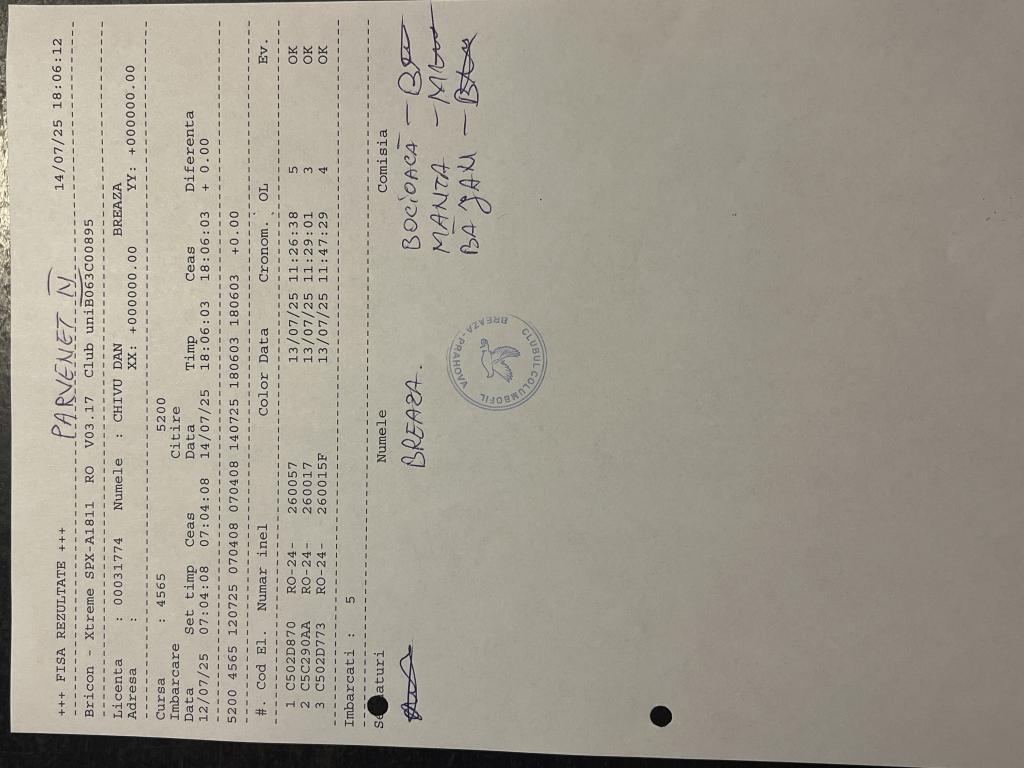 PARVENET N
+++ FISA REZULTATE +++ 14/07/25 18:06:12
Bricon - Xtreme SPX-A1811 RO V03.17 Club uniB063C00895
Licenta : 00031774 Numele : CHIVU DAN BREAZA
Adresa : XX: +000000.00 YY: +000000.00
Cursa : 4565 5200
Imbarcare Citire
Data Set timp Ceas Data Timp Ceas Diferenta
12/07/25 07:04:08 07:04:08 14/07/25 18:06:03 18:06:03 + 0.00
5200 4565 120725 070408 070408 140725 180603 180603 +0.00
#. Cod El. Numar inel Color Data Cronom.: OL Ev.
1 C502D870 RO-24- 260057 13/07/25 11:26:38 5 OK
2 C5C290AA RO-24- 260017 13/07/25 11:29:01 3 OK
3 C502D773 RO-24- 260015F 13/07/25 11:47:29 4 OK
Imbarcati : 5
Se naturi Numele Comisia
BREAZA. BOCIOACĂ -
MANTA -
BĂJAN -
CLUBUL COLUMBOFIL
BREAZA-PRAHOVA